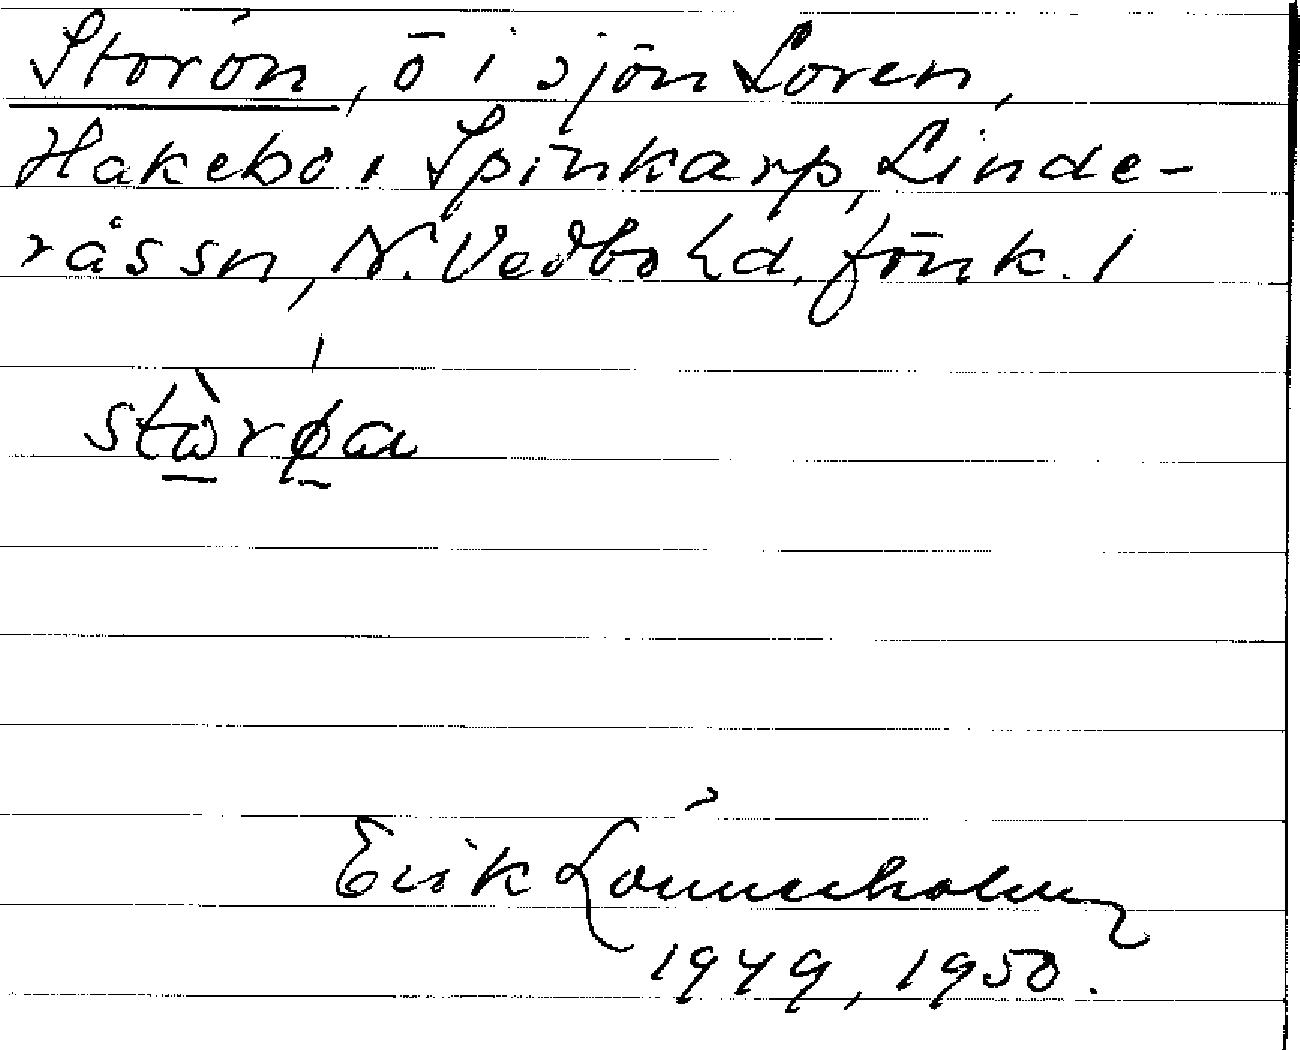 Storön, ö i sjön Loren,
Hakebo, Spinkarp, Linde-
rås sn, N. Vedbo hd, Jönk. l
stωrøa
Erik Lönnerholm
1949, 1950.